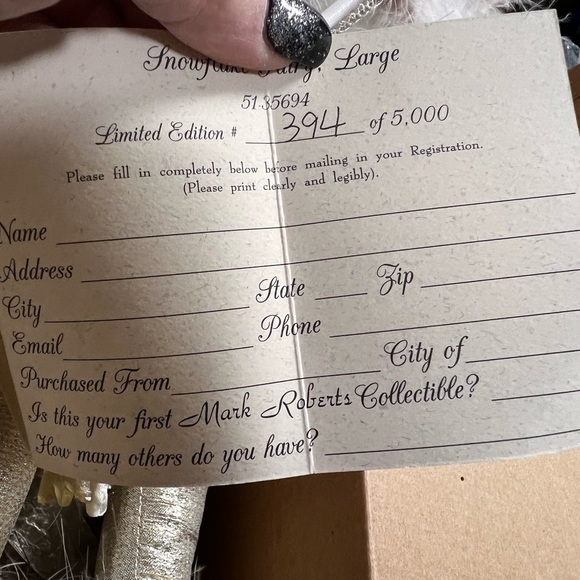 Snowflake Fairy, Large
51-35694
Limited Edition # 394 of 5,000
Please fill in completely below before mailing in your Registration.
(Please print clearly and legibly).
Name
Address
City State Zip
Email Phone
Purchased From City of
Is this your first Mark Roberts Collectible?
How many others do you have?